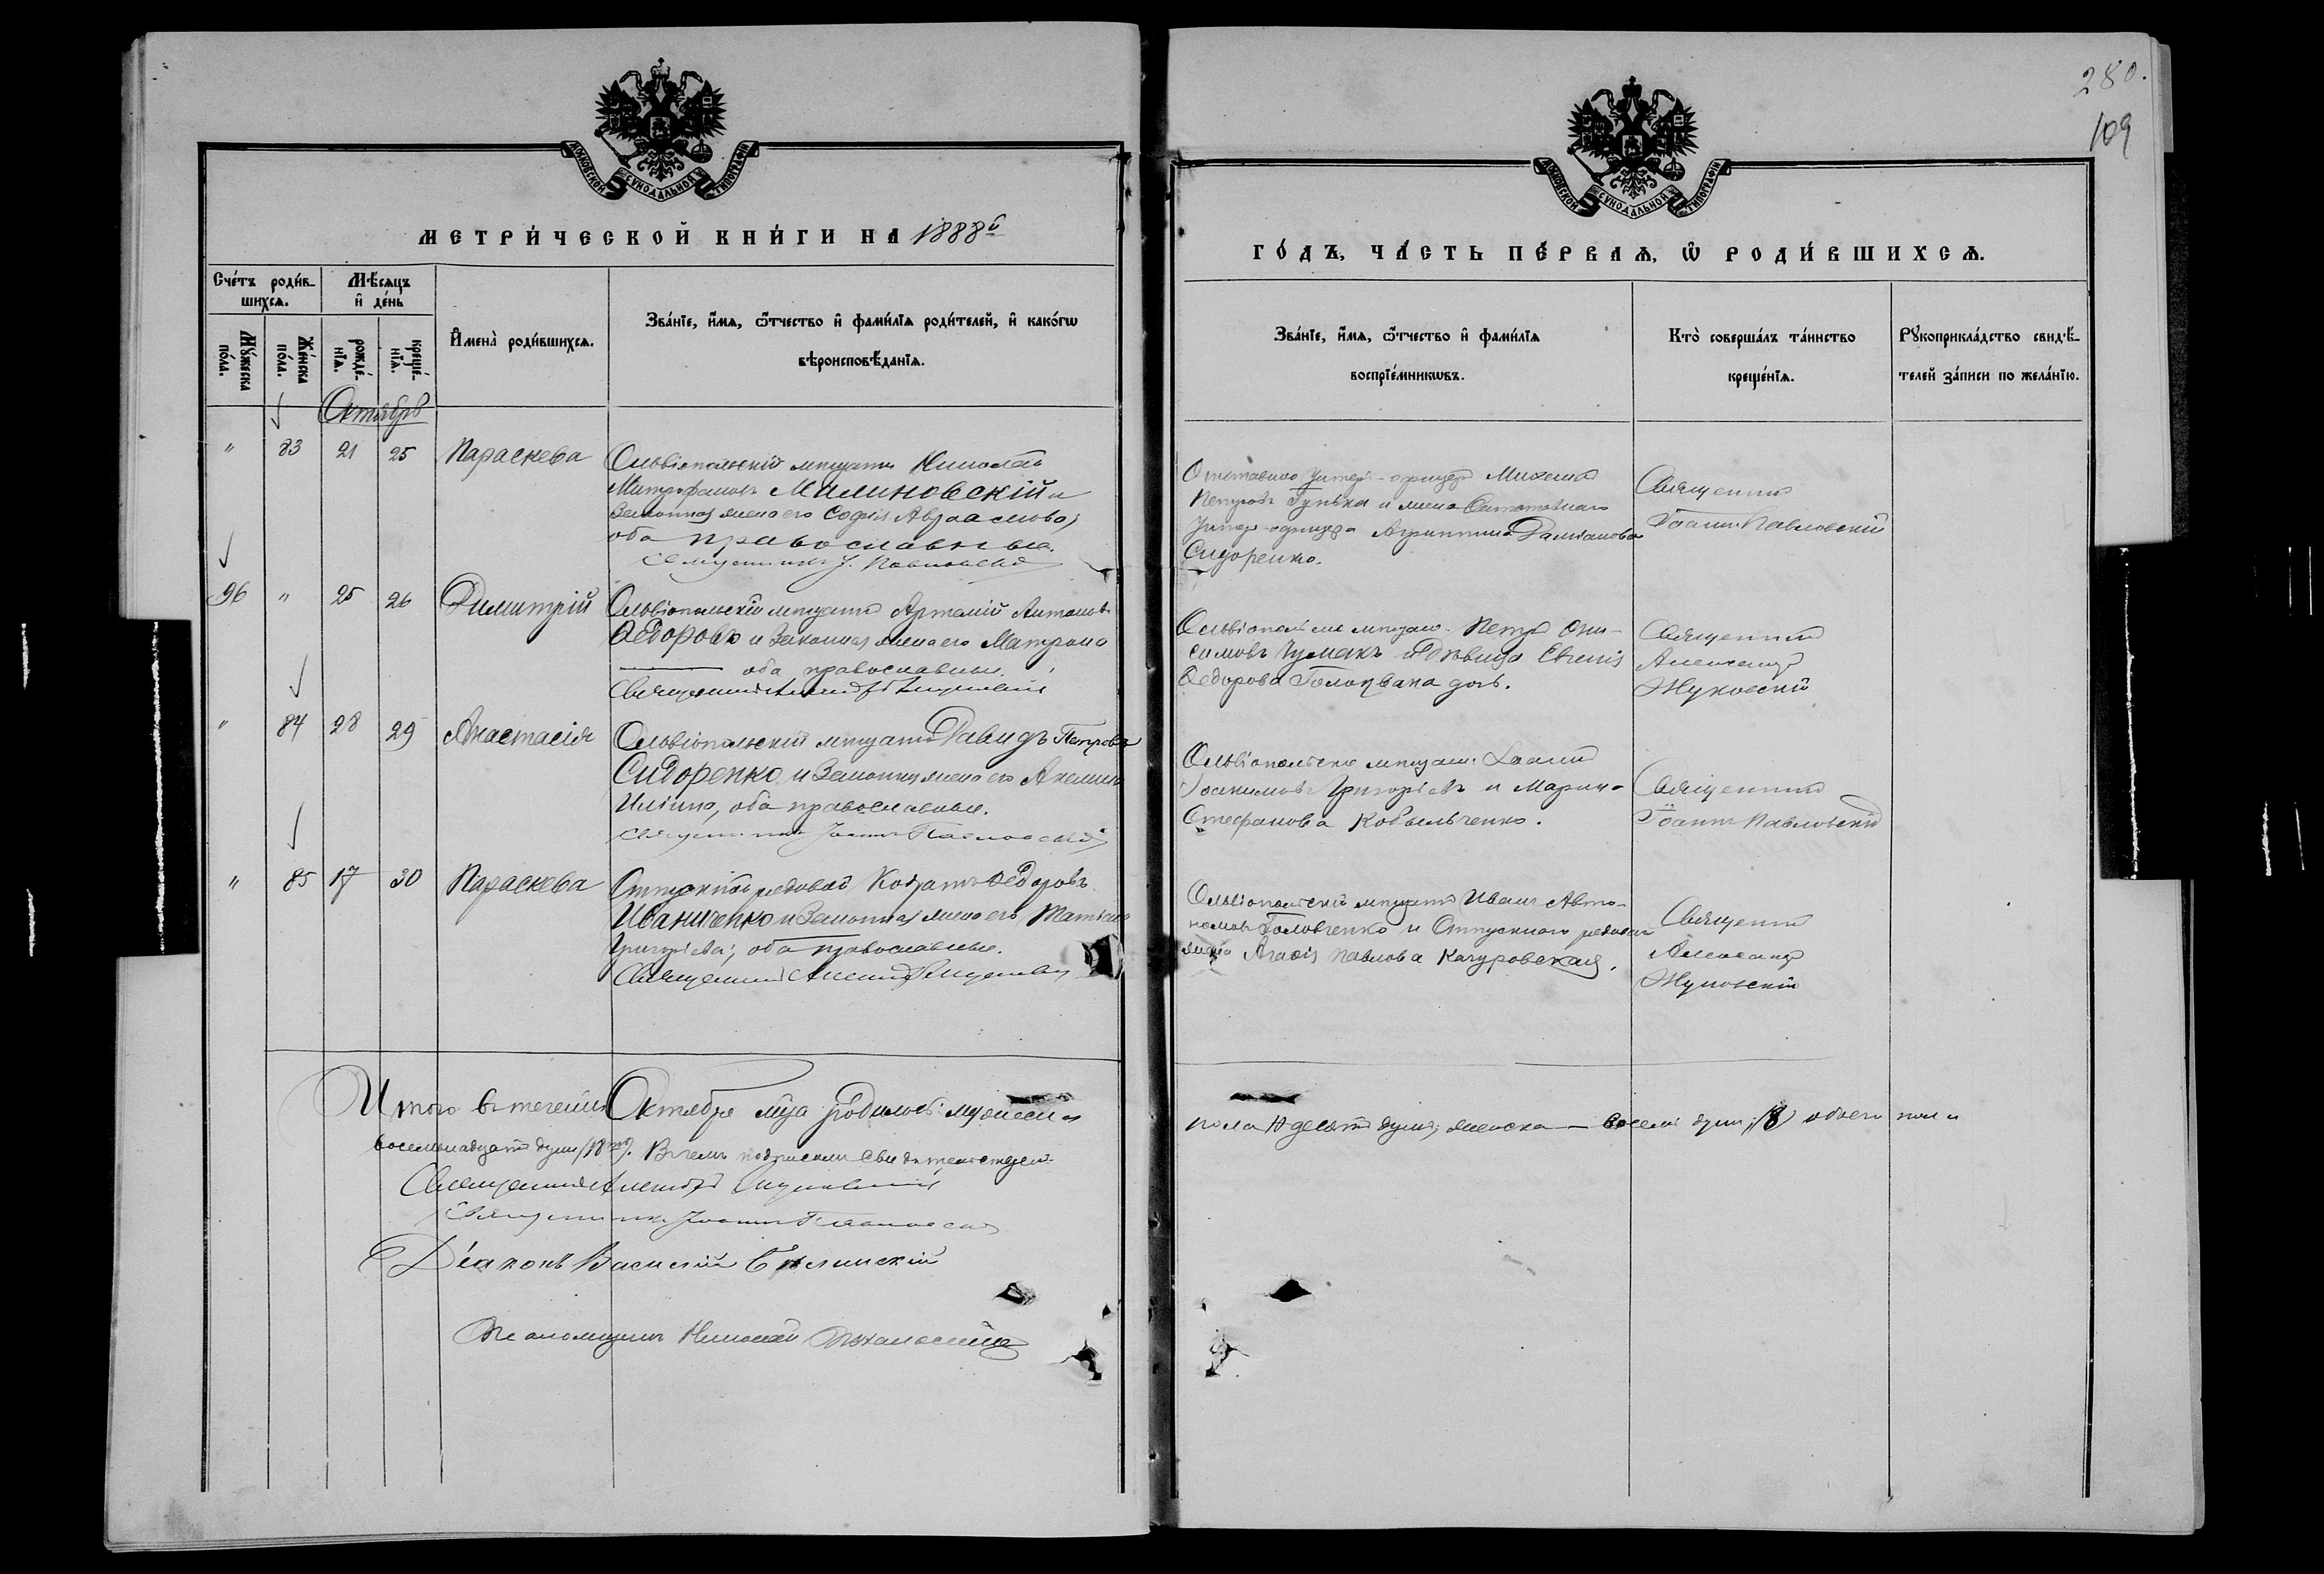 280.
109
МОСКОВСКОЙ СѴНОДАЛЬНОЙ ТИПОГРАФІИ
МОСКОВСКОЙ СѴНОДАЛЬНОЙ ТИПОГРАФІИ
МЕТРИ́ЧЕСКОЙ КНИ́ГИ НА 1888й
ГО́ДЪ, ЧА́СТЬ ПЕ́РВАѦ, Ѿ РОДИ́ВШИХСѦ.
Сче́тъ роди́в-
шихсѧ.
Мѣ́сѧцъ
и҆ де́нь
Мꙋ́жеска
по́ла.
Же́нска
по́ла.
рожде́-
нїѧ.
креще́-
нїѧ.
И҆мена̀ роди́вшихсѧ.
Зва́нїе, и҆́мѧ, ѻ҆́тчество и҆ фами́лїѧ роди́телей, и҆ како́гѡ
вѣроисповѣ́данїѧ.
Зва́нїе, и҆́мѧ, ѻ҆́тчество и҆ фами́лїѧ
воспрїе́мникѡвъ.
Кто̀ соверша́лъ та́инство
креще́нїѧ.
Рꙋкоприкла́дство свидѣ́-
телей за́писи по жела́нїю.
Октябрь
" 83 21 25 Параскева
Ольвіопольскій мѣщанинъ Николай
Митрофановъ Малиновскій и
Законная жена его Софія Авраамова;
оба православные.
Священникъ І. Павловскій
Отставной Унтеръ-офицеръ Михаилъ
Петровъ Гунька и жена Отставнаго
Унтер-офицера Агриппина Даміанова
Сидоренко.
Священникъ
Іоаннъ Павловскій
96 " 25 26 Димитрій
Ольвіопольскій мѣщанинъ Артемій Антоновъ
Ѳедоровъ и Законная жена его Матрона
оба православные.
Священникъ Александръ Жуковскій
Ольвіопольскіе мѣщан. Петръ Они-
симовъ Чумакъ и дѣвица Евгенія
Ѳедорова Голопвана дочь.
Священникъ
Александръ
Жуковскій
" 84 28 29 Анастасія
Ольвіопольскій мѣщанинъ Давидъ Петровъ
Сидоренко и Законная жена его Акелина
Иліина, оба православные.
Священникъ Іоаннъ Павловскій
Ольвіопольскіе мѣщан. Іоаннъ
Іоакимовъ Григорьевъ и Марина
Стефанова Кобыльченко.
Священникъ
Іоаннъ Павловскій
" 85 17 30 Параскева
Отпускной рядовой Кодратъ Ѳедоровъ
Иваниченко и Законная жена его Татіана
Григорьева; оба православные.
Священникъ Александръ Жуковскій
Ольвіопольскій мѣщанинъ Иванъ Авто-
номовъ Головченко и Отпускнаго рядоваго
жена Агафія Павлова Качуровская.
Священникъ
Александръ
Жуковскій
Итого въ теченіи Октября м-ца родилось: мужеска
пола 10 десять душъ, женска — восемь душъ; (8) обоего пола
восемнадцать душъ (18). Въ чемъ подписомъ свидѣтельствуемъ.
Священникъ Александръ Жуковскій
Священникъ Іоаннъ Павловскій
Діаконъ Василій Бѣлинскій
Псаломщикъ Николай